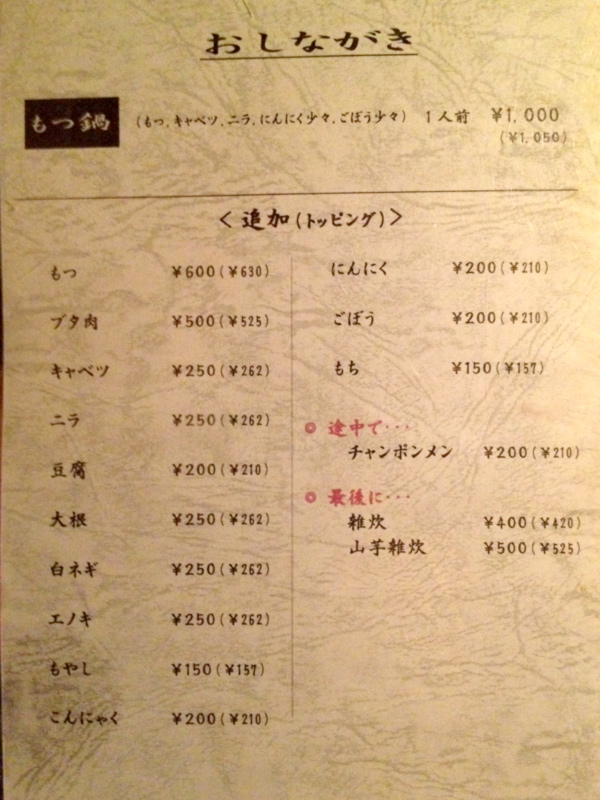 おしながき
もつ鍋 (もつ、キャベツ、ニラ、にんにく少々、ごぼう少々) 1人前 ¥1,000
(¥1,050)
<追加(トッピング)>
もつ ¥600(¥630)
ブタ肉 ¥500(¥525)
キャベツ ¥250(¥262)
ニラ ¥250(¥262)
豆腐 ¥200(¥210)
大根 ¥250(¥262)
白ネギ ¥250(¥262)
エノキ ¥250(¥262)
もやし ¥150(¥157)
こんにゃく ¥200(¥210)
にんにく ¥200(¥210)
ごぼう ¥200(¥210)
もち ¥150(¥157)
◎ 途中で····
チャンポンメン ¥200(¥210)
◎ 最後に···
雑炊 ¥400(¥420)
山芋雑炊 ¥500(¥525)